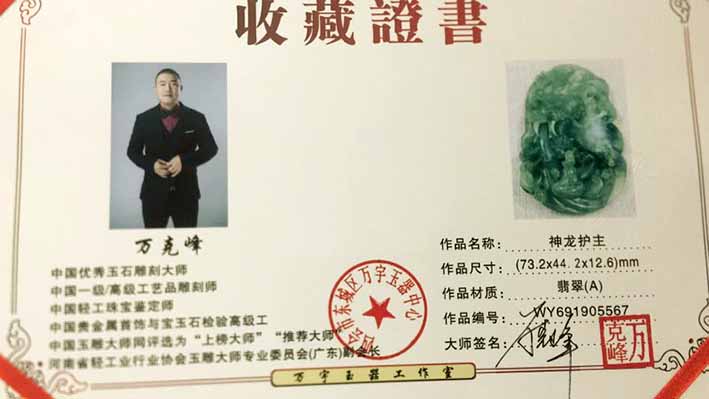 收藏證書
万克峰
中国优秀玉石雕刻大师
中国一级/高级工艺品雕刻师
中国轻工珠宝鉴定师
中国贵金属首饰与宝玉石检验高级工
中国玉雕大师网评选为“上榜大师”“推荐大师”
河南省轻工业行业协会玉雕大师专业委员会(广东)副会长
四会市东城区万字玉器中心
作品名称: 神龙护主
作品尺寸: (73.2x44.2x12.6)mm
作品材质: 翡翠(A)
作品编号: WY691905567
大师签名:
万克峰
万字玉器工作室